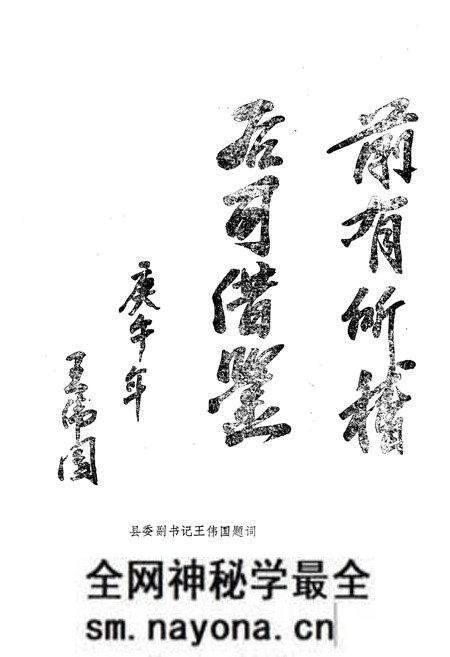 前有所稽
后可借鉴
庚午年
王伟国
县委副书记王伟国题词
全网神秘学最全
sm.nayona.cn